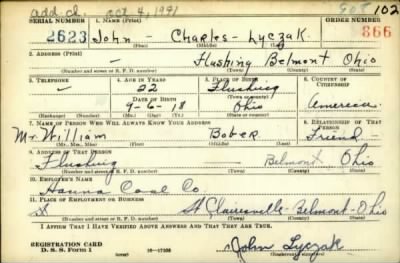 add. ch. Oct 4, 1941 102
SERIAL NUMBER 1. NAME (Print) ORDER NUMBER
2623 John - Charles - Lyczak 866
(First) (Middle) (Last)
2. ADDRESS (Print)
— Flushing Belmont Ohio
(Number and street or R. F. D. number) (Town) (County) (State)
3. TELEPHONE 4. AGE IN YEARS 5. PLACE OF BIRTH 6. COUNTRY OF CITIZENSHIP
— 22 Flushing
DATE OF BIRTH (Town or county)
9-6-18 Ohio American
(Exchange) (No.) (Mo.) (Day) (Yr.) (State or country)
7. NAME OF PERSON WHO WILL ALWAYS KNOW YOUR ADDRESS 8. RELATIONSHIP OF THAT PERSON
Mr William Bober Friend
(Mr., Mrs., Miss) (First) (Middle) (Last)
9. ADDRESS OF THAT PERSON
Flushing Belmont, Ohio
(Number and street or R. F. D. number) (Town) (County) (State)
10. EMPLOYER'S NAME
Hanna Coal Co.
11. PLACE OF EMPLOYMENT OR BUSINESS
St Clairsville - Belmont - Ohio
(Number and street or R. F. D. number) (Town) (County) (State)
I AFFIRM THAT I HAVE VERIFIED ABOVE ANSWERS AND THAT THEY ARE TRUE.
REGISTRATION CARD
D. S. S. Form 1 16-17105 John Lyczak
(over) (Registrant's signature)